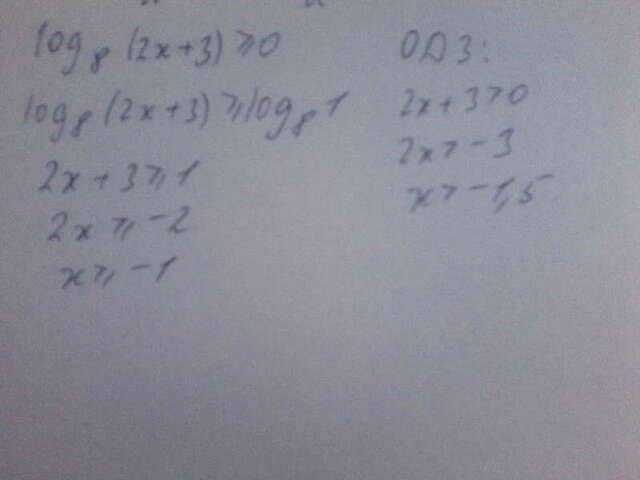 log₈ (2x+3) ⩾ 0
log₈ (2x+3) ⩾ log₈ 1
2x + 3 ⩾ 1
2x ⩾ -2
x ⩾ -1
ОДЗ:
2x + 3 > 0
2x > -3
x > -1,5